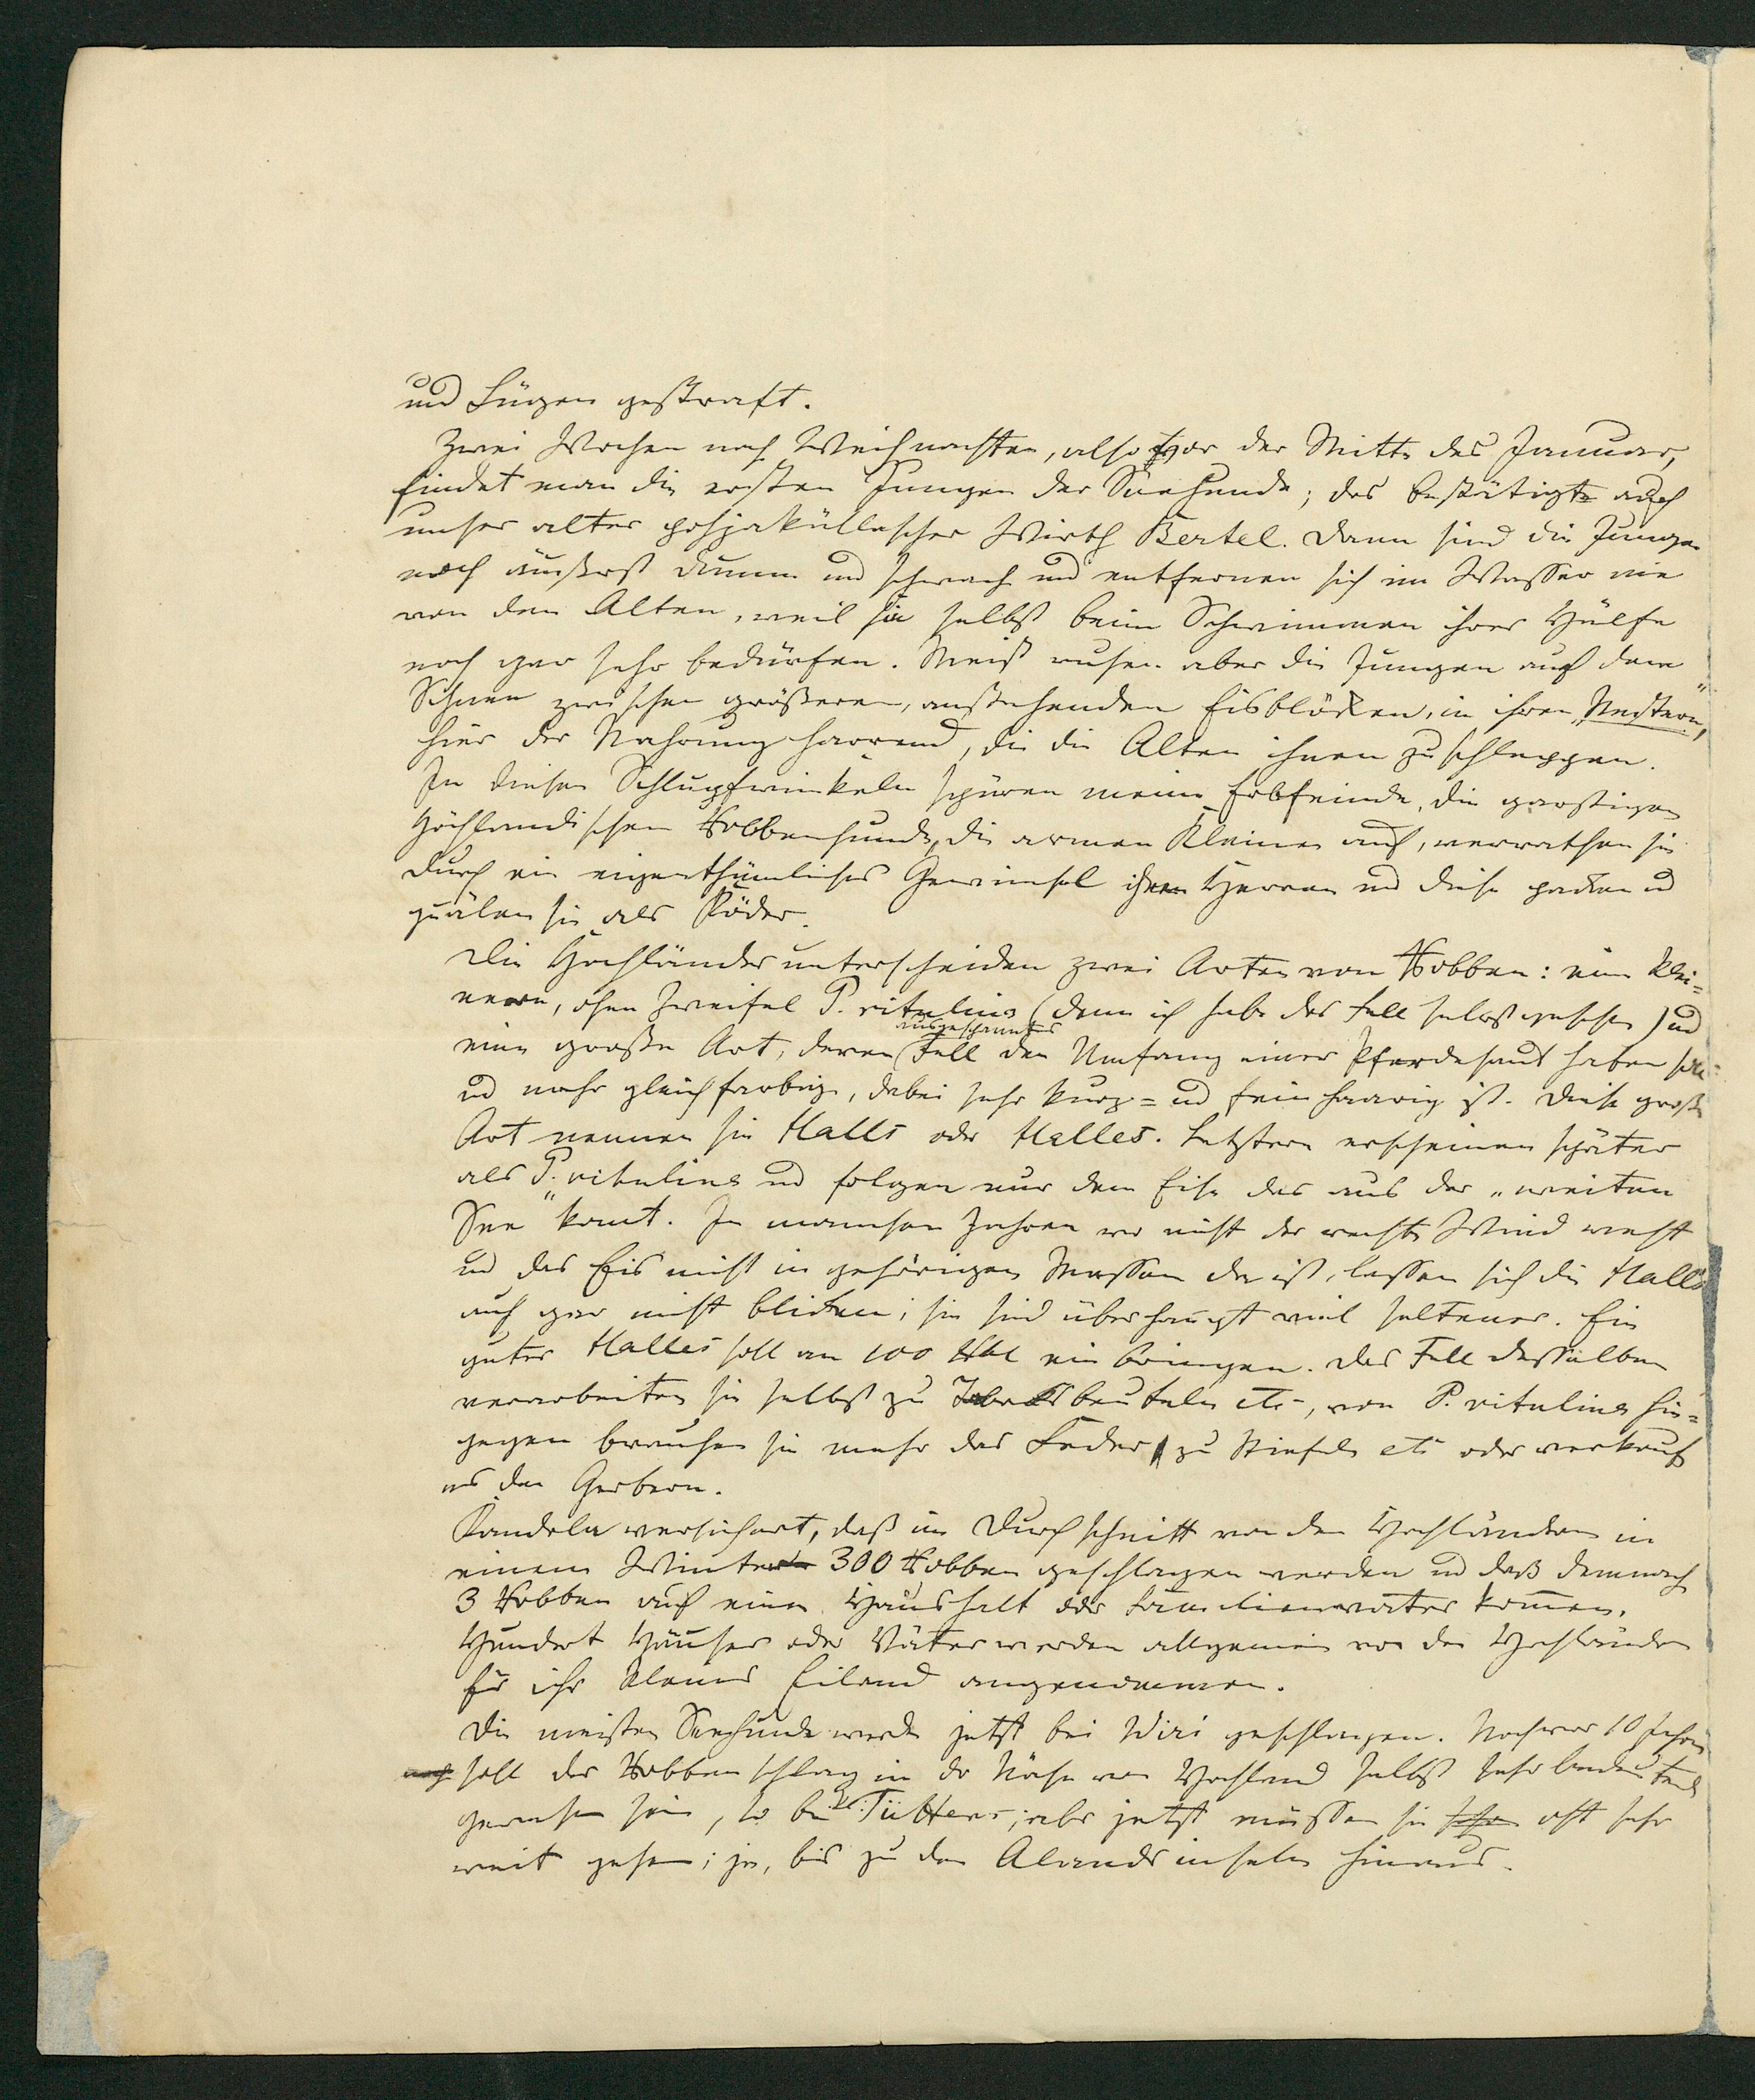 und Lügen gestraft.
Zwei Wochen nach Weihnachten, also vor der Mitte des Januar,
findet man die ersten Jungen der Seehunde; das bestätigte auch
unser alter pohjaküllascher Wirth Bertel. Dann sind die Jungen
noch äußerst dumm und schwach und entfernen sich im Wasser nie
von den Alten, weil sie selbst beim Schwimmen ihrer Hülfe
noch gar sehr bedürfen. Meist ruhen aber die Jungen auf dem
Schnee zwischen größeren, anstehenden Eisblöcken, in ihren „Nestern“,
hier der Nahrung harrend, die die Alten ihnen zuschleppen.
In diesen Schlupfwinkeln spüren meine Erbfeinde, die garstigen
Hochlandischen Robbenhunde, die armen Kleinen auf, verrathen sie
durch ein eigenthümliches Gewinsel ihren Herren und diese packen und
quälen sie als Köder.
Die Hochländer unterscheiden zwei Arten von Robben: eine klei=
nere, ohne Zweifel P. vitulina (denn ich habe das Fell selbst gesehen) und
ausgespanntes
eine große Art, deren Fell den Umfang einer Pferdehaut haben soll
und mehr gleichfarbig, dabei sehr kurz= und feinhaarig ist. Diese große
Art nennen sie Halli oder Halles. Letztere erscheinen später
als P. vitulina und folgen nur dem Eise das aus der „weiten
See“ komt. In manchen Jahren wo nicht der rechte Wind weht
und das Eis nicht in gehörigen Massen da ist, lassen sich die Halli's
auch gar nicht blicken; sie sind überhaupt viel seltener. Ein
guter Halles soll an 100 Rbl einbringen. Das Fell desselben
verarbeiten sie selbst zu Tabaksbeuteln etc, von P. vitulina hin=
gegen brauchen sie mehr das Leder zu Stiefeln etc oder verkauf
es den Gerbern.
Kandela versichert, daß im Durchschnitt von den Hochländern in
einem Winter 300 Robben geschlagen werden und daß demnach
3 Robben auf einen Haushalt oder Familienvater kommen.
Hundert Häuser oder Väter werden allgemein von den Hochländern
für ihr kleines Eiland angenommen.
Die meisten Seehunde werden jetzt bei Wiri geschlagen. Noch vor 10 Jahren
soll der Robbenschlag in der Nähe von Hochland selbst sehr bedeutend
gewesen sein, so bei kl. Tütters; aber jetzt müssen sie oft sehr
weit gehen; ja, bis zu den Alandsinseln hinaus.